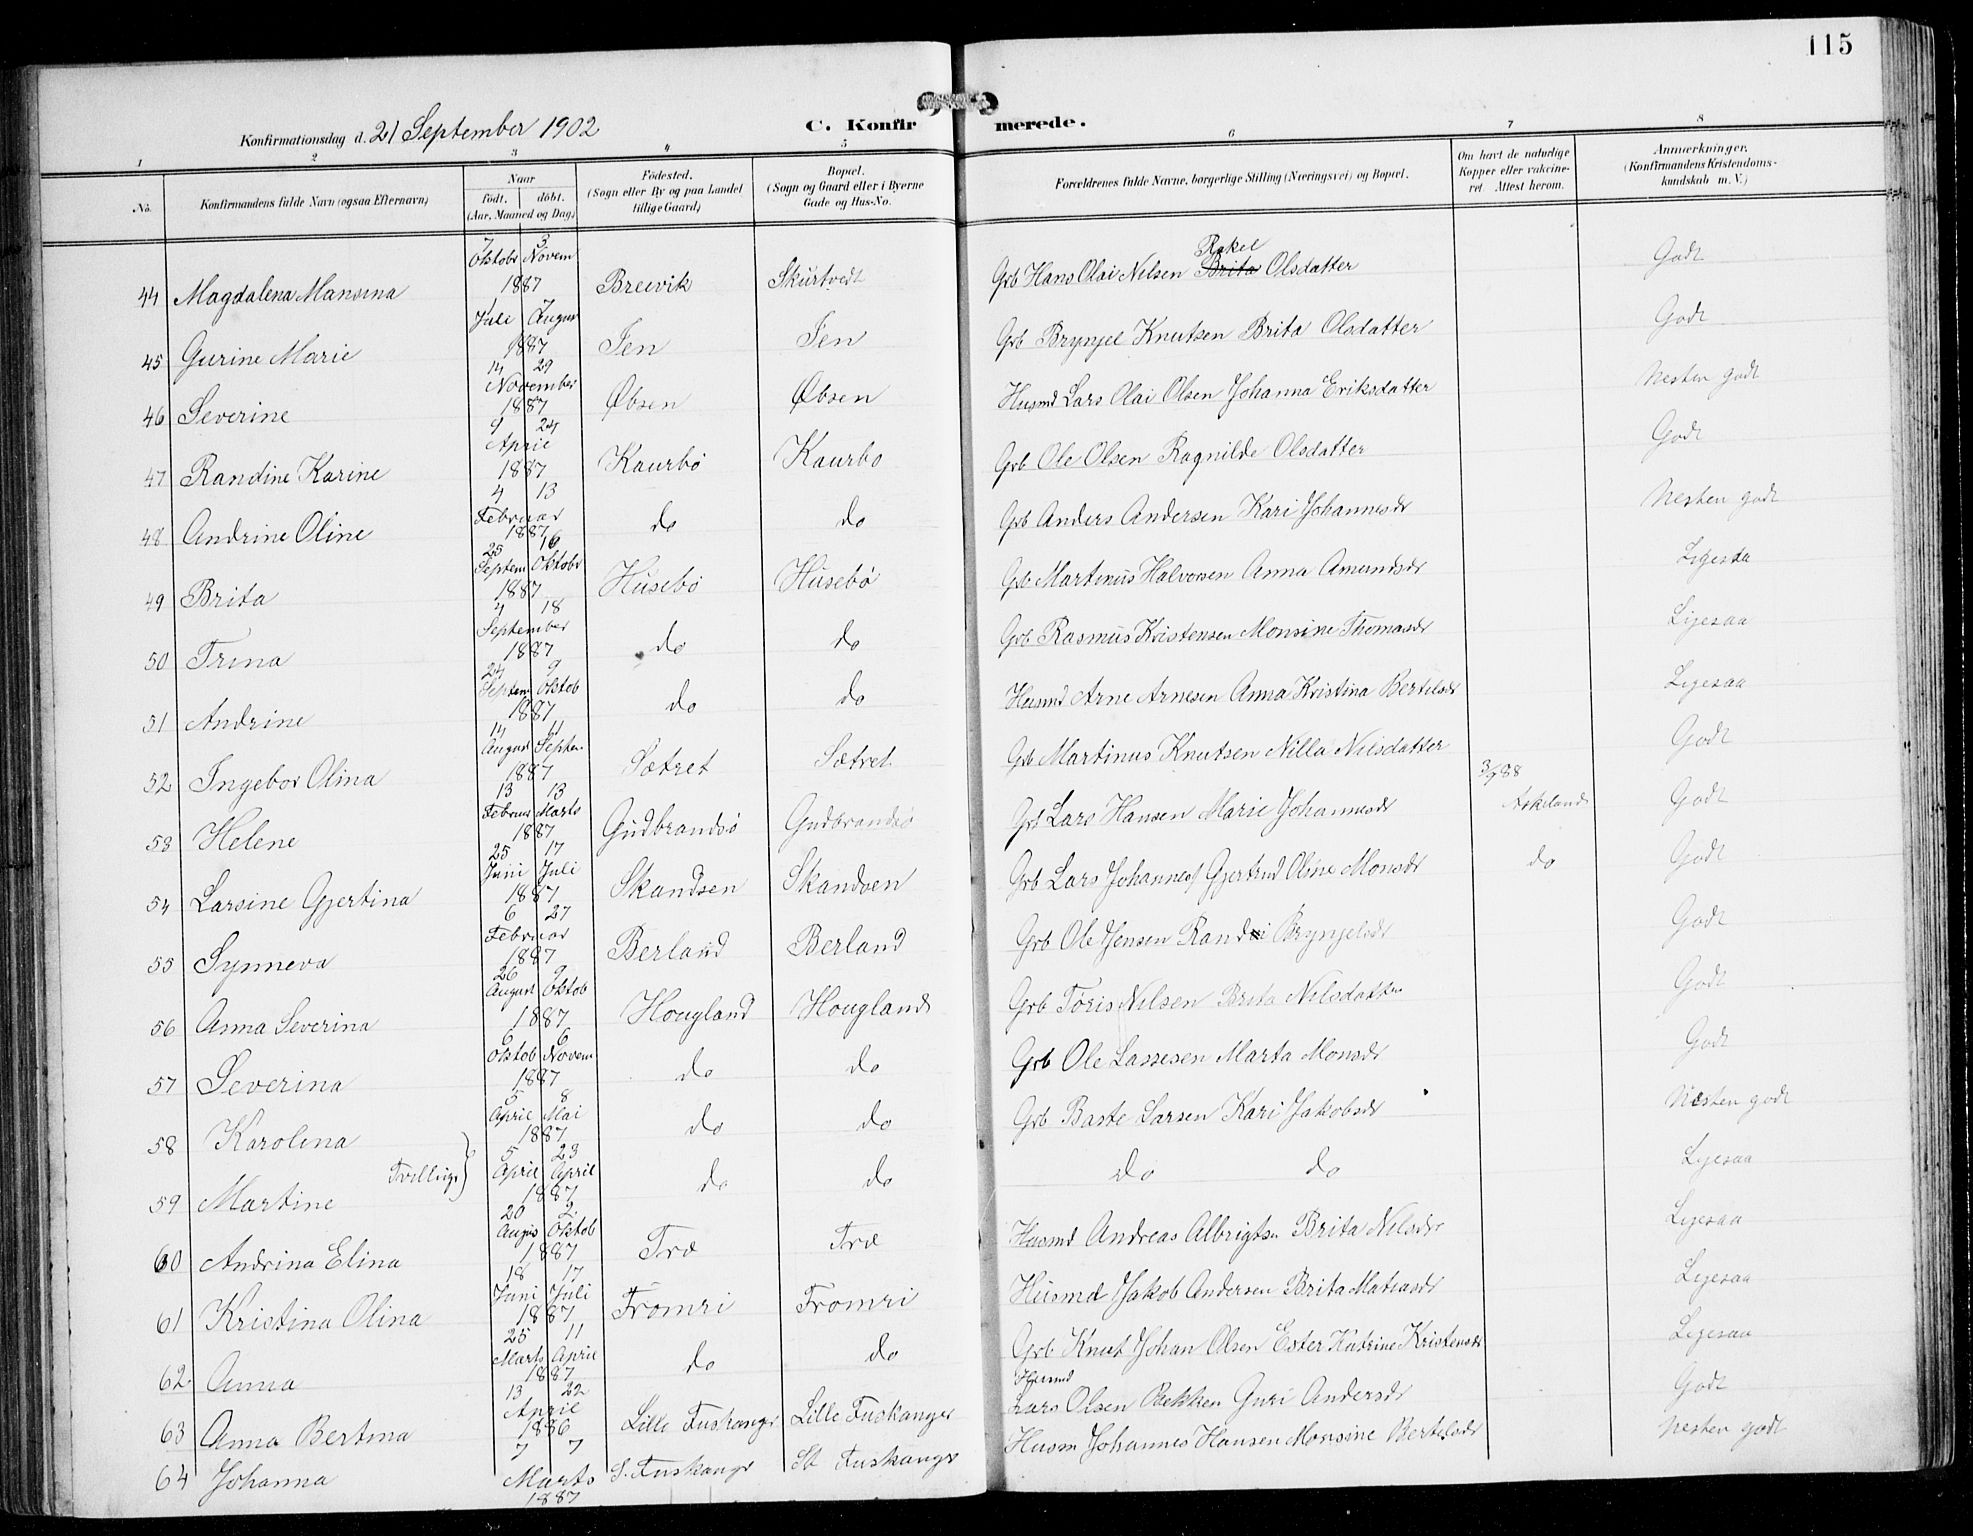 115
Konfirmationsdag d. 21 September 1902
C. Konfirmerede.
1 2 3 4 5 6 7 8
No. Konfirmandens fulde Navn (ogsaa Efternavn) Naar födt. döbt. (Aar, Maaned og Dag) Födested. (Sogn eller By og paa Landet tillige Gaard) Bopæl. (Sogn og Gaard eller i Byerne Gade og Hus-No. Forældrenes fulde Navne, borgerlige Stilling (Næringsvei) og Bopæl. Om havt de naturlige Kopper eller vakcineret. Attest herom. Anmærkninger. (Konfirmandens Kristendomskundskab m. V.)
44 Magdalena Mansina 7 Oktobr 3 Novem 1887 Breivik Skurtvedt Grb Hans Olai Nilsen Brita Rakel Olsdatter Godt
45 Gurine Marie 1 Juli 7 Augus 1887 Fen Fen Grb Brynjel Knutsen Brita Olsdatter Godt
46 Severine 14 29 November 1887 Øbsen Øbsen Husmd Lars Olai Olsen Johanna Eriksdatter Nesten godt
47 Randine Karine 9 24 April 1887 Kaurbö Kaurbo Grb Ole Olsen Ragnilde Olsdatter Godt
48 Andrine Oline 4 13 Februar 1887 do do Grb Anders Andersen Kari Johannesdr Nesten godt
49 Brita 25 Septem 16 Oktobr 1887 Husebö Husebö Grb Martinus Halvorsen Anna Amundsdr Ligesaa
50 Trina 4 18 September 1887 do do Grb Rasmus Kristensen Monsine Thomasdr Ligesaa
51 Andrine 24 Septem 9 Oktob 1887 do do Husmd Arne Arnesen Anna Kristina Bertelsdr Ligesaa
52 Ingebor Olina 14 August 11 Septem. 1887 Sætret Sætret Grb Martinus Knutsen Nilla Nilsdatter Godt
53 Helene 13 Februar 13 Marts 1887 Gudbrandsö Gudbrandsö Grb Lars Hansen Marie Johannesdr 3/9 88 Askeland Godt
54 Larsine Gjertina 25 Juni 17 Juli 1887 Skandsen Skandsen Grb Lars Johannes/ Gjertrud Oline Monsdr do Godt
55 Synneva 6 27 Februar 1887 Berland Berland Grb Ole Jensen Randi Brynjelsdr Godt
56 Anna Severina 26 August 9 Oktob 1887 Hougland Hougland Grb Töris Nilsen Brita Nilsdatter Godt
57 Severina 6 Oktob 6 Novem. 1887 do do Grb Ole Lassesen Marta Monsdr Godt
58 Karolina 5 April 8 Mai 1887 do do Grb Baste Larsen Kari Jakobsdr Nesten godt
59 Martine Tvillinge} 5 April 23 April 1887 do do do do Ligesaa
60 Andrina Elina 20 Augus 2 Oktob 1887 Træ Træ Husmd Andreas Albrigtsn Brita Nilsdr Ligesaa
61 Kristina Olina 18 Juni 17 Juli 1887 Tromri Tromri Husmd Jakob Andersen Brita Matiasdr Ligesaa
62 Anna 25 Marts 11 April 1887 do do Grb Knut Johan Olsen Ester Katrine Kristensdr Ligesaa
63 Anna Bertina 13 22 April 1886 Lille Fuskanger Lille Fuskanger Husmd Lars Olsen Bekken Guri Andersdr Godt
64 Johanna 7 7 Marts 1887 S. Fuskangr St Fuskangr Husm Johannes Hansen Monsine Bertelsdr Nesten godt